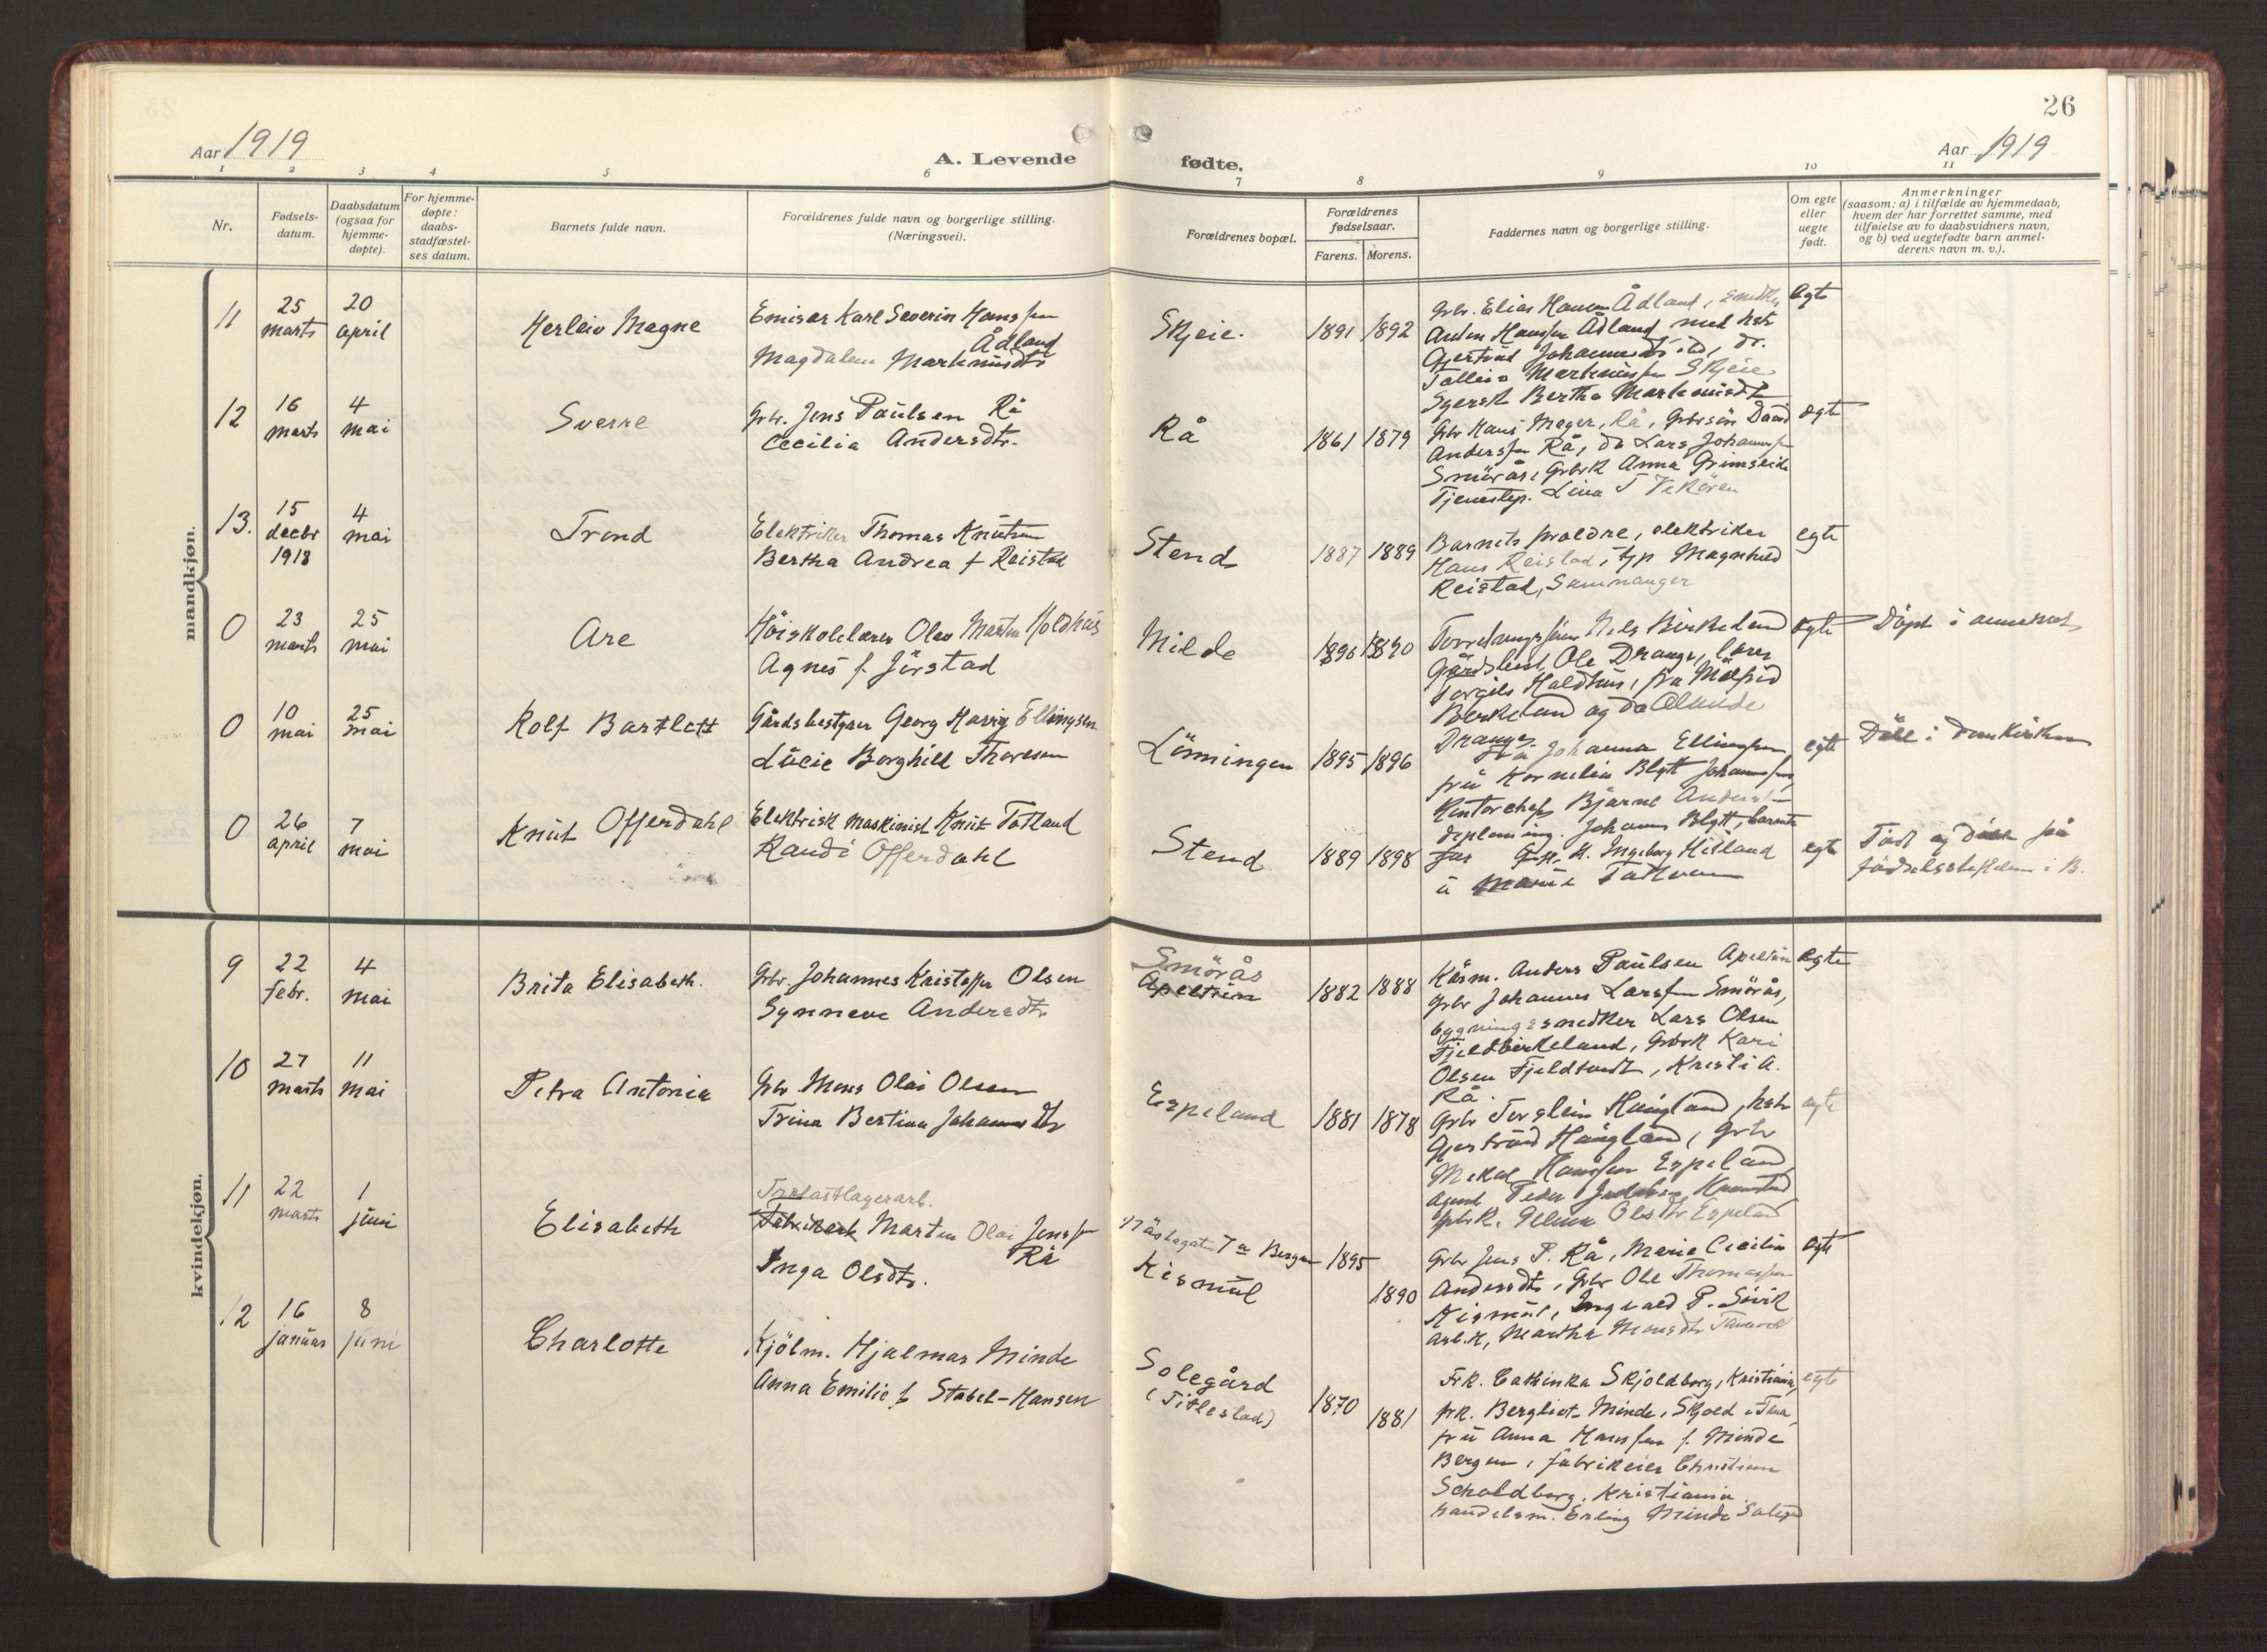 26
Aar 1919
A. Levende
fødte.
Aar 1919
1 2 3 4 5 6 7 8 9 10 11
Nr.
Fødsels-
datum.
Daabsdatum
(ogsaa for
hjemme-
døpte).
For hjemme-
døpte:
daabs-
stadfæstel-
ses datum.
Barnets fulde navn.
Forældrenes fulde navn og borgerlige stilling.
(Næringsvei).
Forældrenes bopæl.
Forældrenes
fødselsaar.
Farens. Morens.
Faddernes navn og borgerlige stilling.
Om egte
eller
uegte
født.
Anmerkninger
(saasom: a) i tilfælde av hjemmedaab,
hvem der har forrettet samme, med
tilføielse av to daabsvidners navn,
og b) ved uegtefødte barn anmel-
derens navn m. v.).
mandkjøn.
11
25
marts
20
april
Herleiv Magne
Emisær Karl Severin Hanssen
Ådland
Magdalena Markusdtr
Skjeie.
1891 1892
Grbr. Elias Hansen Ådland, snedker
Anton Hanssen Ådland med hstr
Gjertrud Johannesdtr ibd, do.
Tolleiv Skjeie
Bertha
egte
12
16
marts
4
mai
Sverre
Grbr. Jens Paulsen Rå
Cecilia Andersdtr.
Rå
1861 1879
Grbr Hans Meyer, Rå, Grbrsön David
Anderssen Rå, do Lars Johannessen
Smörås, Grbrk Anna Grimseide
Tjenestep. Lina T Vekören
egte
13.
15
decbr
1918
4
mai
Trond
Elektriker Thomas Knutsen
Bertha Andrea f Reistad
Stend
1887 1889
Barnets foreldre, elektriker
Hans Reistad, tjp Magnhild
Reistad, Samnanger
egte
0
23
marts
25
mai
Are
Höiskolelærer Olav Martin Holdhus
Agnes f. Jörstad
Milde
1896 1890
Nils Birkeland
Gårdsbest Ole Drange, lærer
Torgils Holdhus, fru Målfrid
Berkeland og do Olaude
Drange.
egte
Döpt i
0
10
mai
25
mai
Rolf Bartlett
Gårdsbestyrer Georg Harry Ellingsen
Lucie Borghild Thoresen
Lönningen
1895 1896
Fru Johanna Ellingsen
fru Kornelia Blytt Johannessen,
Kontorchef Bjarne Andersen
diploming. Johannes Blytt, barnets
far
egte
Döbt i Domkirken
0
26
april
7
mai
Knut Offerdahl
Elektrisk maskinist Knut Totland
Randi Offerdahl
Stend
1889 1898
Ingeborg Hisland
egte
Födt og döbt på
födselsstiftelsen i B.
kvindekjøn.
9
22
febr.
4
mai
Brita Elisabeth.
Grbr. Johannes Kristoffer Olsen
Synneve Andersdtr
Smörås
Apeltun
1882 1888
Kårm. Anders Paulsen Apeltun
Grbr Johannes Larssen Smörås,
bygningssnedker Lars Olsen
Fjeldbirkeland, Grbrk Kari
Olsen Fjeldtvedt, Kristi A.
Rå.
egte
10
27
marts
11
mai
Petra Antonia
Grbr Mons Olai Olsen
Trina Bertina Johannesdtr
Espeland
1881 1878
Grbr Torstein Haugland, hstr
Gjertrud Haugland, Grbr
Mikal Hanssen Espeland
agent Peder
Olsdtr Espeland
egte
11
22
marts
1
juni
Elisabeth
Trelastlagerarb.
Fabrikark Marten Olai Jenssen
Rå
Inga Olsdtr.
7a Bergen
Kismul
1895
1890
Grbr Jens P. Rå, Maria Cecilia
Andersdtr, Grbr Ole Thomassen
Kismul, Ingvald P. Sivik
arb.k, Martha Monsdtr
egte
12
16
januar
8
juni
Charlotte
Kjölm. Hjalmar Minde
Anna Emilie f Stabel-Hansen
Solegård
(Titlestad)
1870
1881
Frk. Cathinka Skjoldborg, Kristiania,
frk. Bergliot Minde, Skjold i Fana,
fru Anna Hanssen f. Minde
Bergen, fabrikeier Christian
Scholdborg, Kristiania
handelsm. Erling Minde Solegård
egte